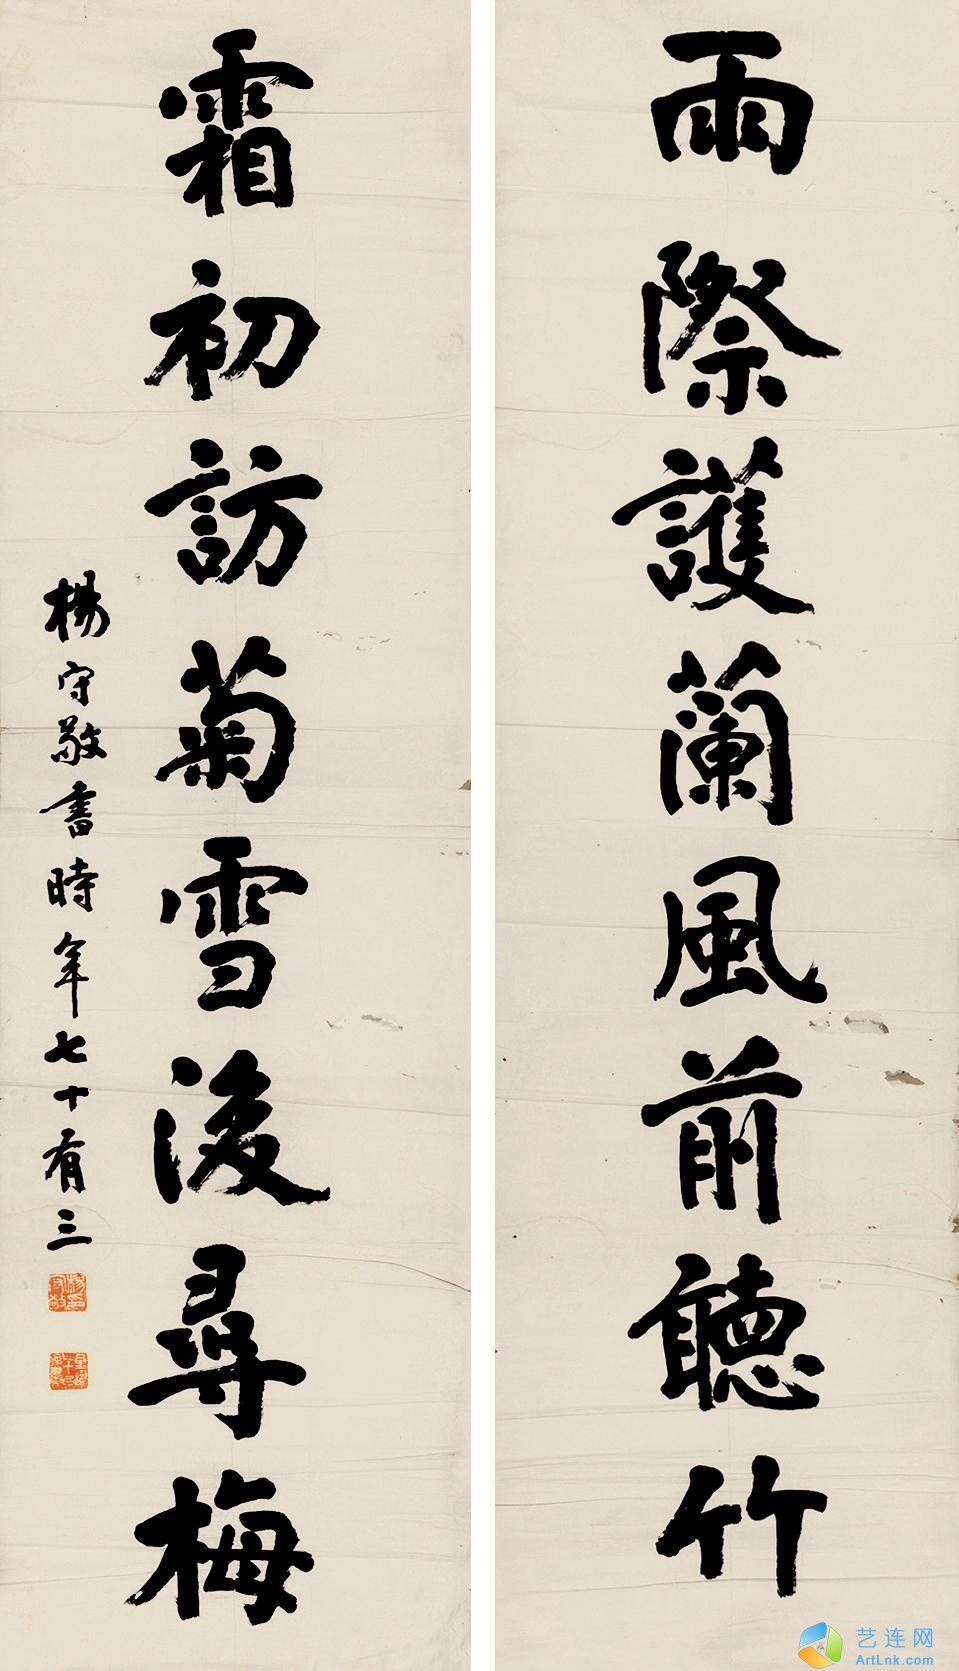 雨際護蘭風前聽竹
霜初訪菊雪後尋梅
楊守敬書時年七十有三
艺连网
ArtLnk.com